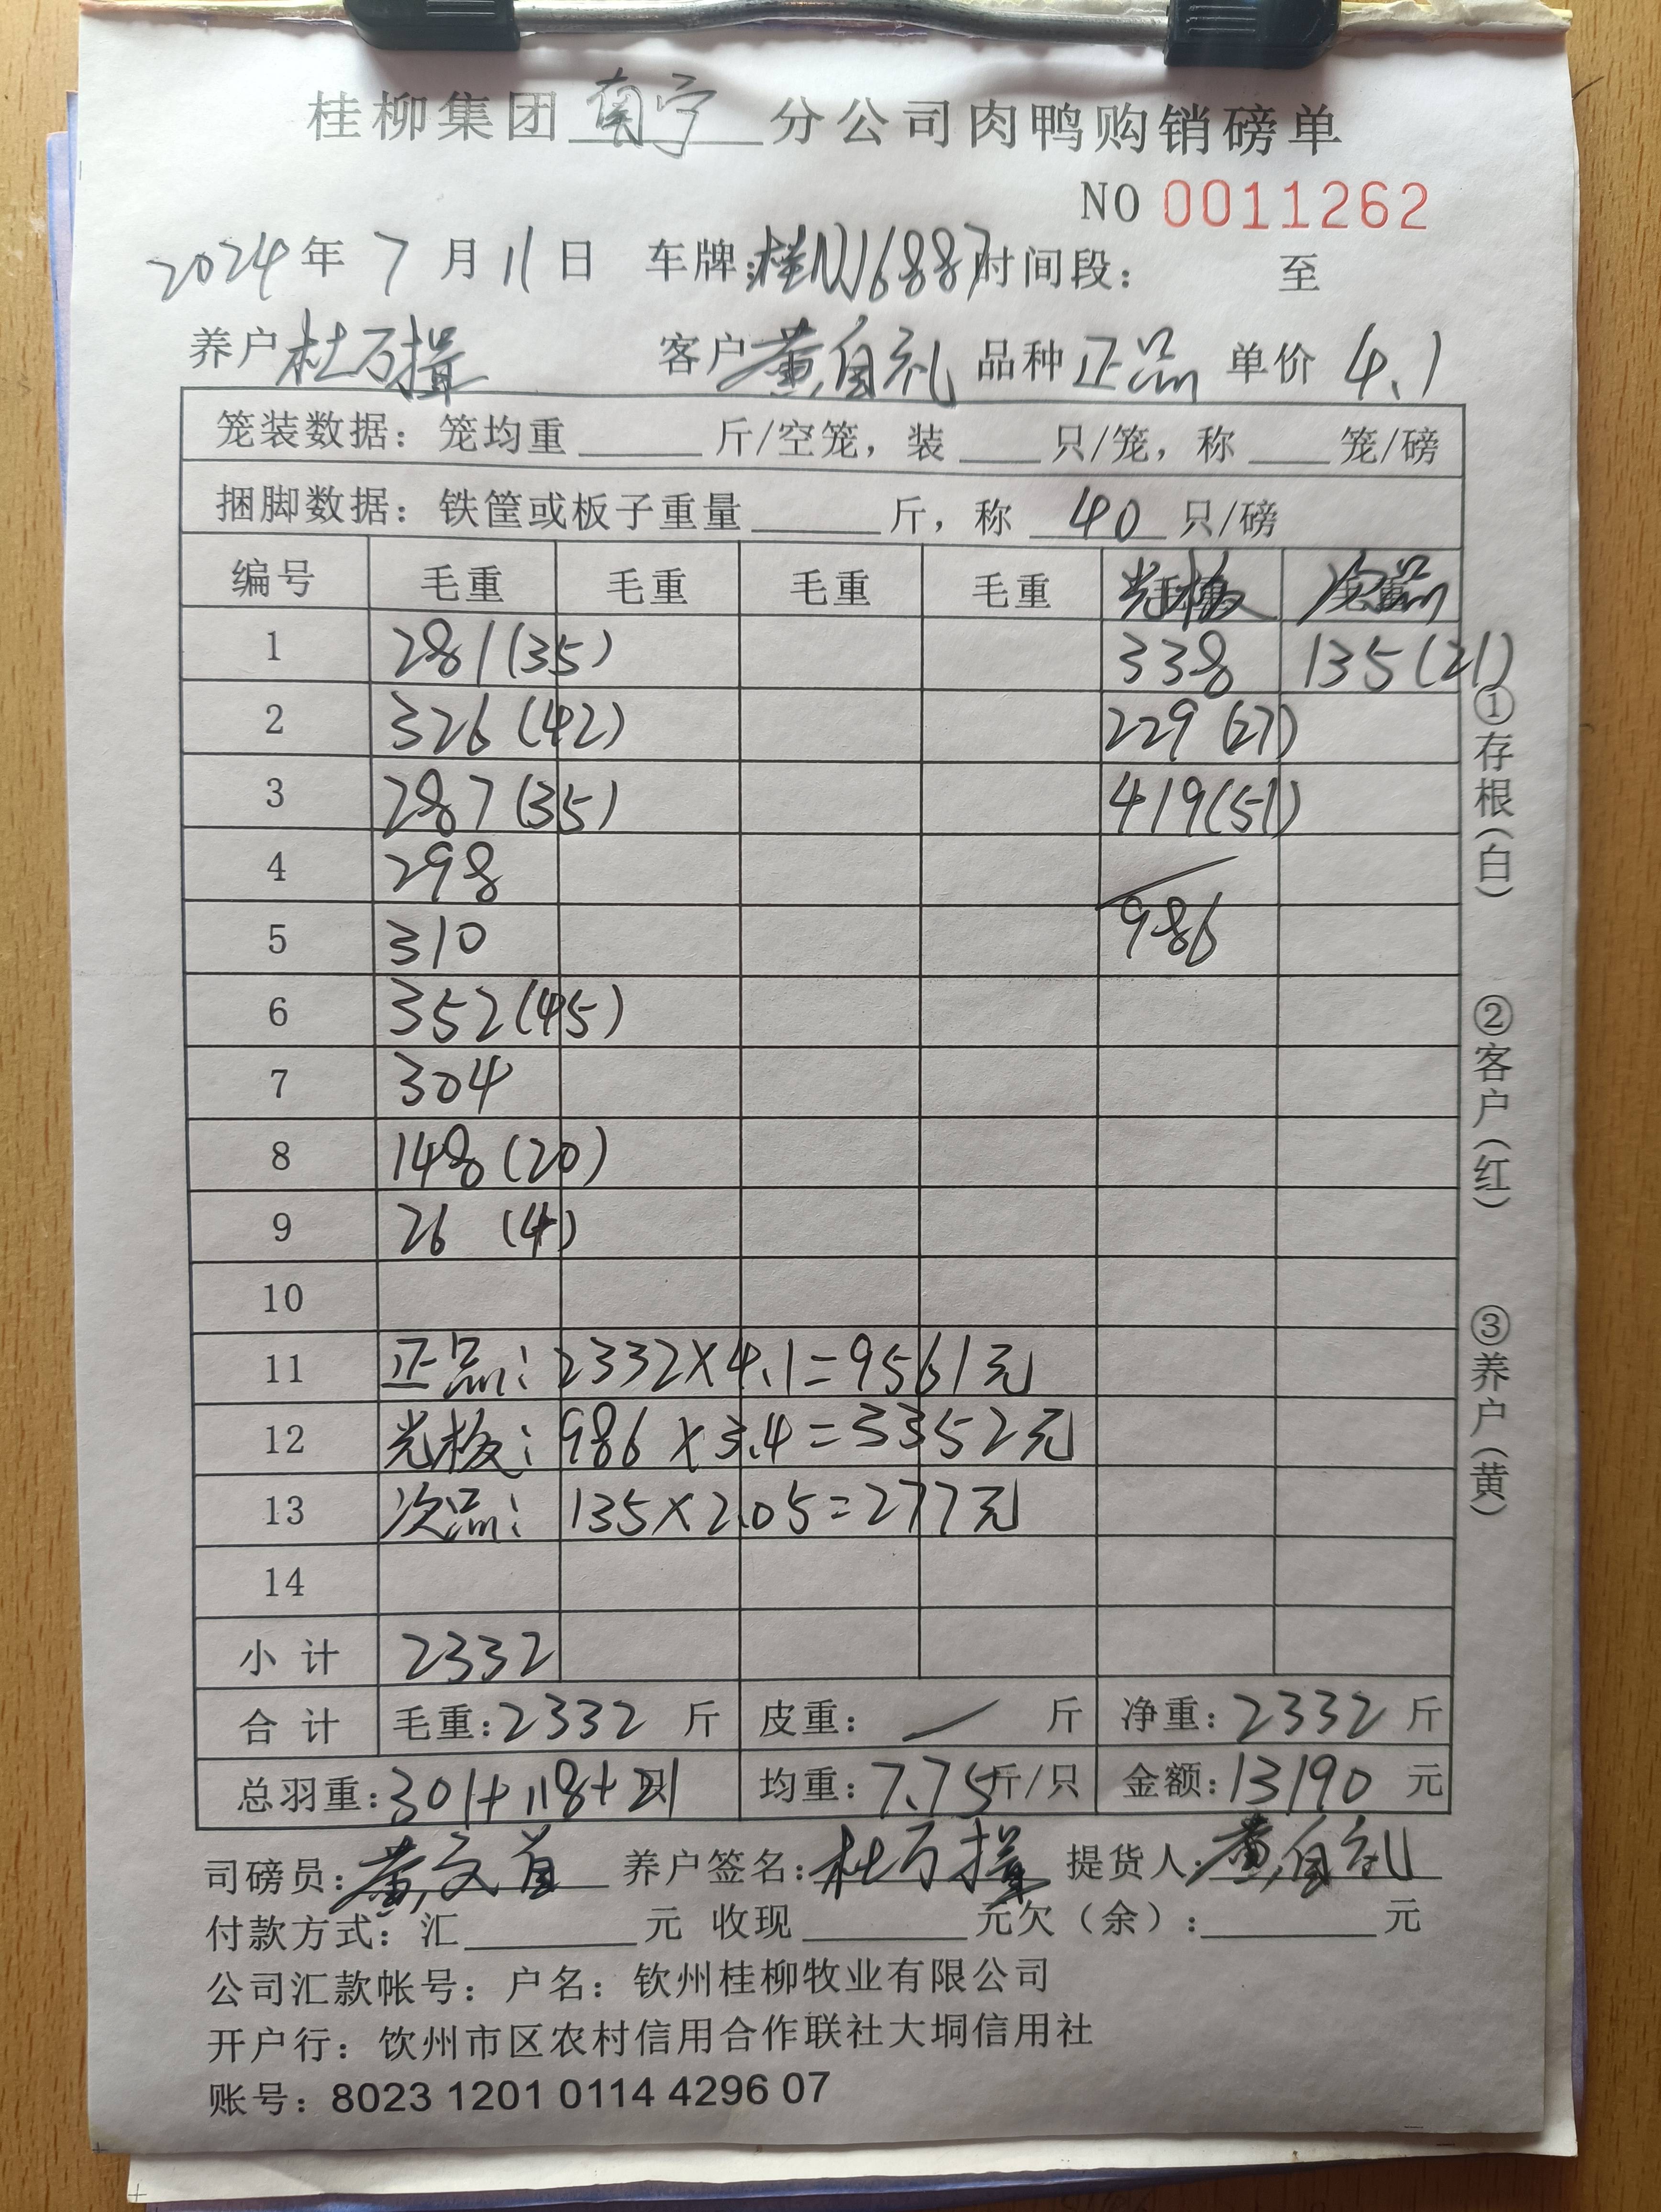 桂柳集团 南宁 分公司肉鸭购销磅单
NO 0011262
2024年 7 月 11 日 车牌:桂N16887 时间段: 至
养户 杜万揖 客户 黄自礼 品种 正品 单价 4.1
笼装数据: 笼均重 斤/空笼, 装 只/笼, 称 笼/磅
捆脚数据: 铁筐或板子重量 斤, 称 40 只/磅
编号 毛重 毛重 毛重 毛重 光板 次品
1 281(35) 338 135(21)
2 326(42) 229(27)
3 287(35) 419(51)
4 298
5 310 986
6 352(45)
7 304
8 148(20)
9 26 (4)
10
11 正品: 2332×4.1=9561元
12 光板: 986×3.4=3352元
13 次品: 135×2.05=277元
14
小计 2332
合计 毛重:2332 斤 皮重: 斤 净重:2332 斤
总羽重:301+118+21只 均重:7.75斤/只 金额:13190 元
司磅员: 黄文 养户签名:杜万揖 提货人:黄自礼
付款方式: 汇 元 收现 元欠(余): 元
公司汇款帐号: 户名: 钦州桂柳牧业有限公司
开户行: 钦州市区农村信用合作联社大垌信用社
账号: 8023 1201 0114 4296 07
①存根(白)
②客户(红)
③养户(黄)